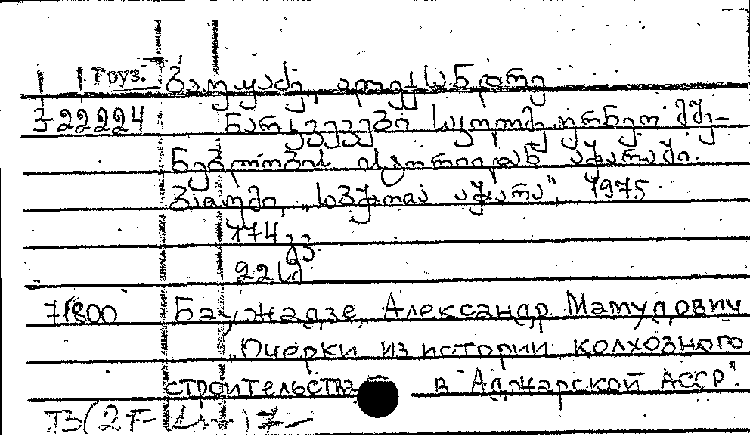 Груз. ბაუჟაძე, ალექსანდრე
3-22224 ნარკვევები საკოლმეურნეო მშე-
ნებლობის ისტორიიდან აჭარაში.
ბათუმი, „საბჭოთა აჭარა", 1975.
174 გვ.
22 სმ
71800 Баужадзе, Александр Мамудович
„Очерки из истории колхозного
строительства в Аджарской АССР".